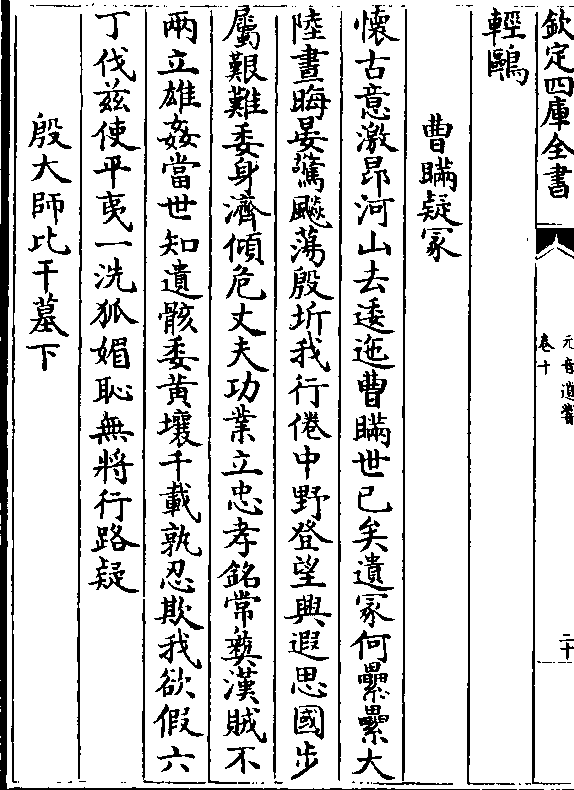 欽定四庫全書
元音遺響
卷十
二十
輕鷗
曹瞞疑冢
懷古意激昂河山去逶迤曹瞞世已矣遺冢何纍纍大
陸晝晦晏驚飈蕩殷圻我行倦中野登望興遐思國步
屬艱難委身濟傾危丈夫功業立忠孝銘常彝漢賊不
兩立雄姦當世知遺骸委黃壤千載孰忍欺我欲假六
丁伐兹使平夷一洗狐媚恥無將行路疑
殷大師比干墓下